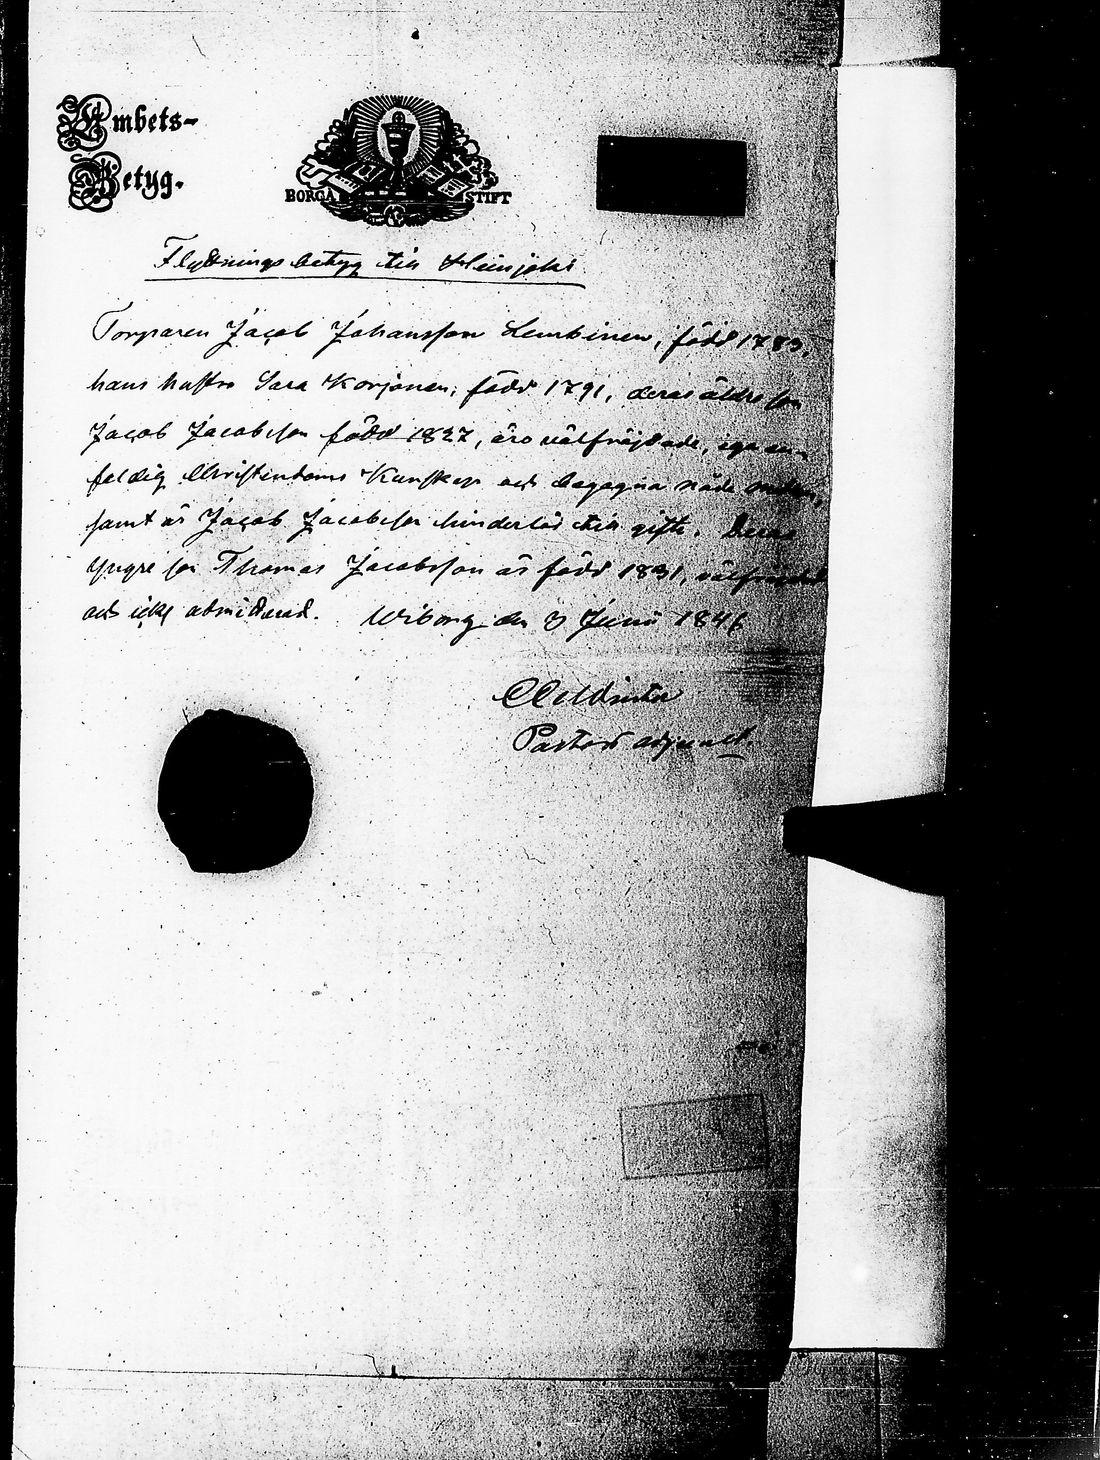 Embets-
Betyg.
BORGÅ STIFT
Flyttnings betyg till Heinjoki
Torparen Jacob Johansson Lembinen, född 1783,
hans hustru Sara Korjonen, född 1791, deras äldre son
Jacob Jacobsson född 1827, äro välfrejdade, ega en-
faldig Christendoms Kunskap och begagna nåde medlen,
samt är Jacob Jacobsson hinderlös till gifte. Deras
yngre son Thomas Jacobsson är född 1831, välfrejdad
och icke admitterad. Wiborg den 3 Junii 1846
Pastors adjunct.